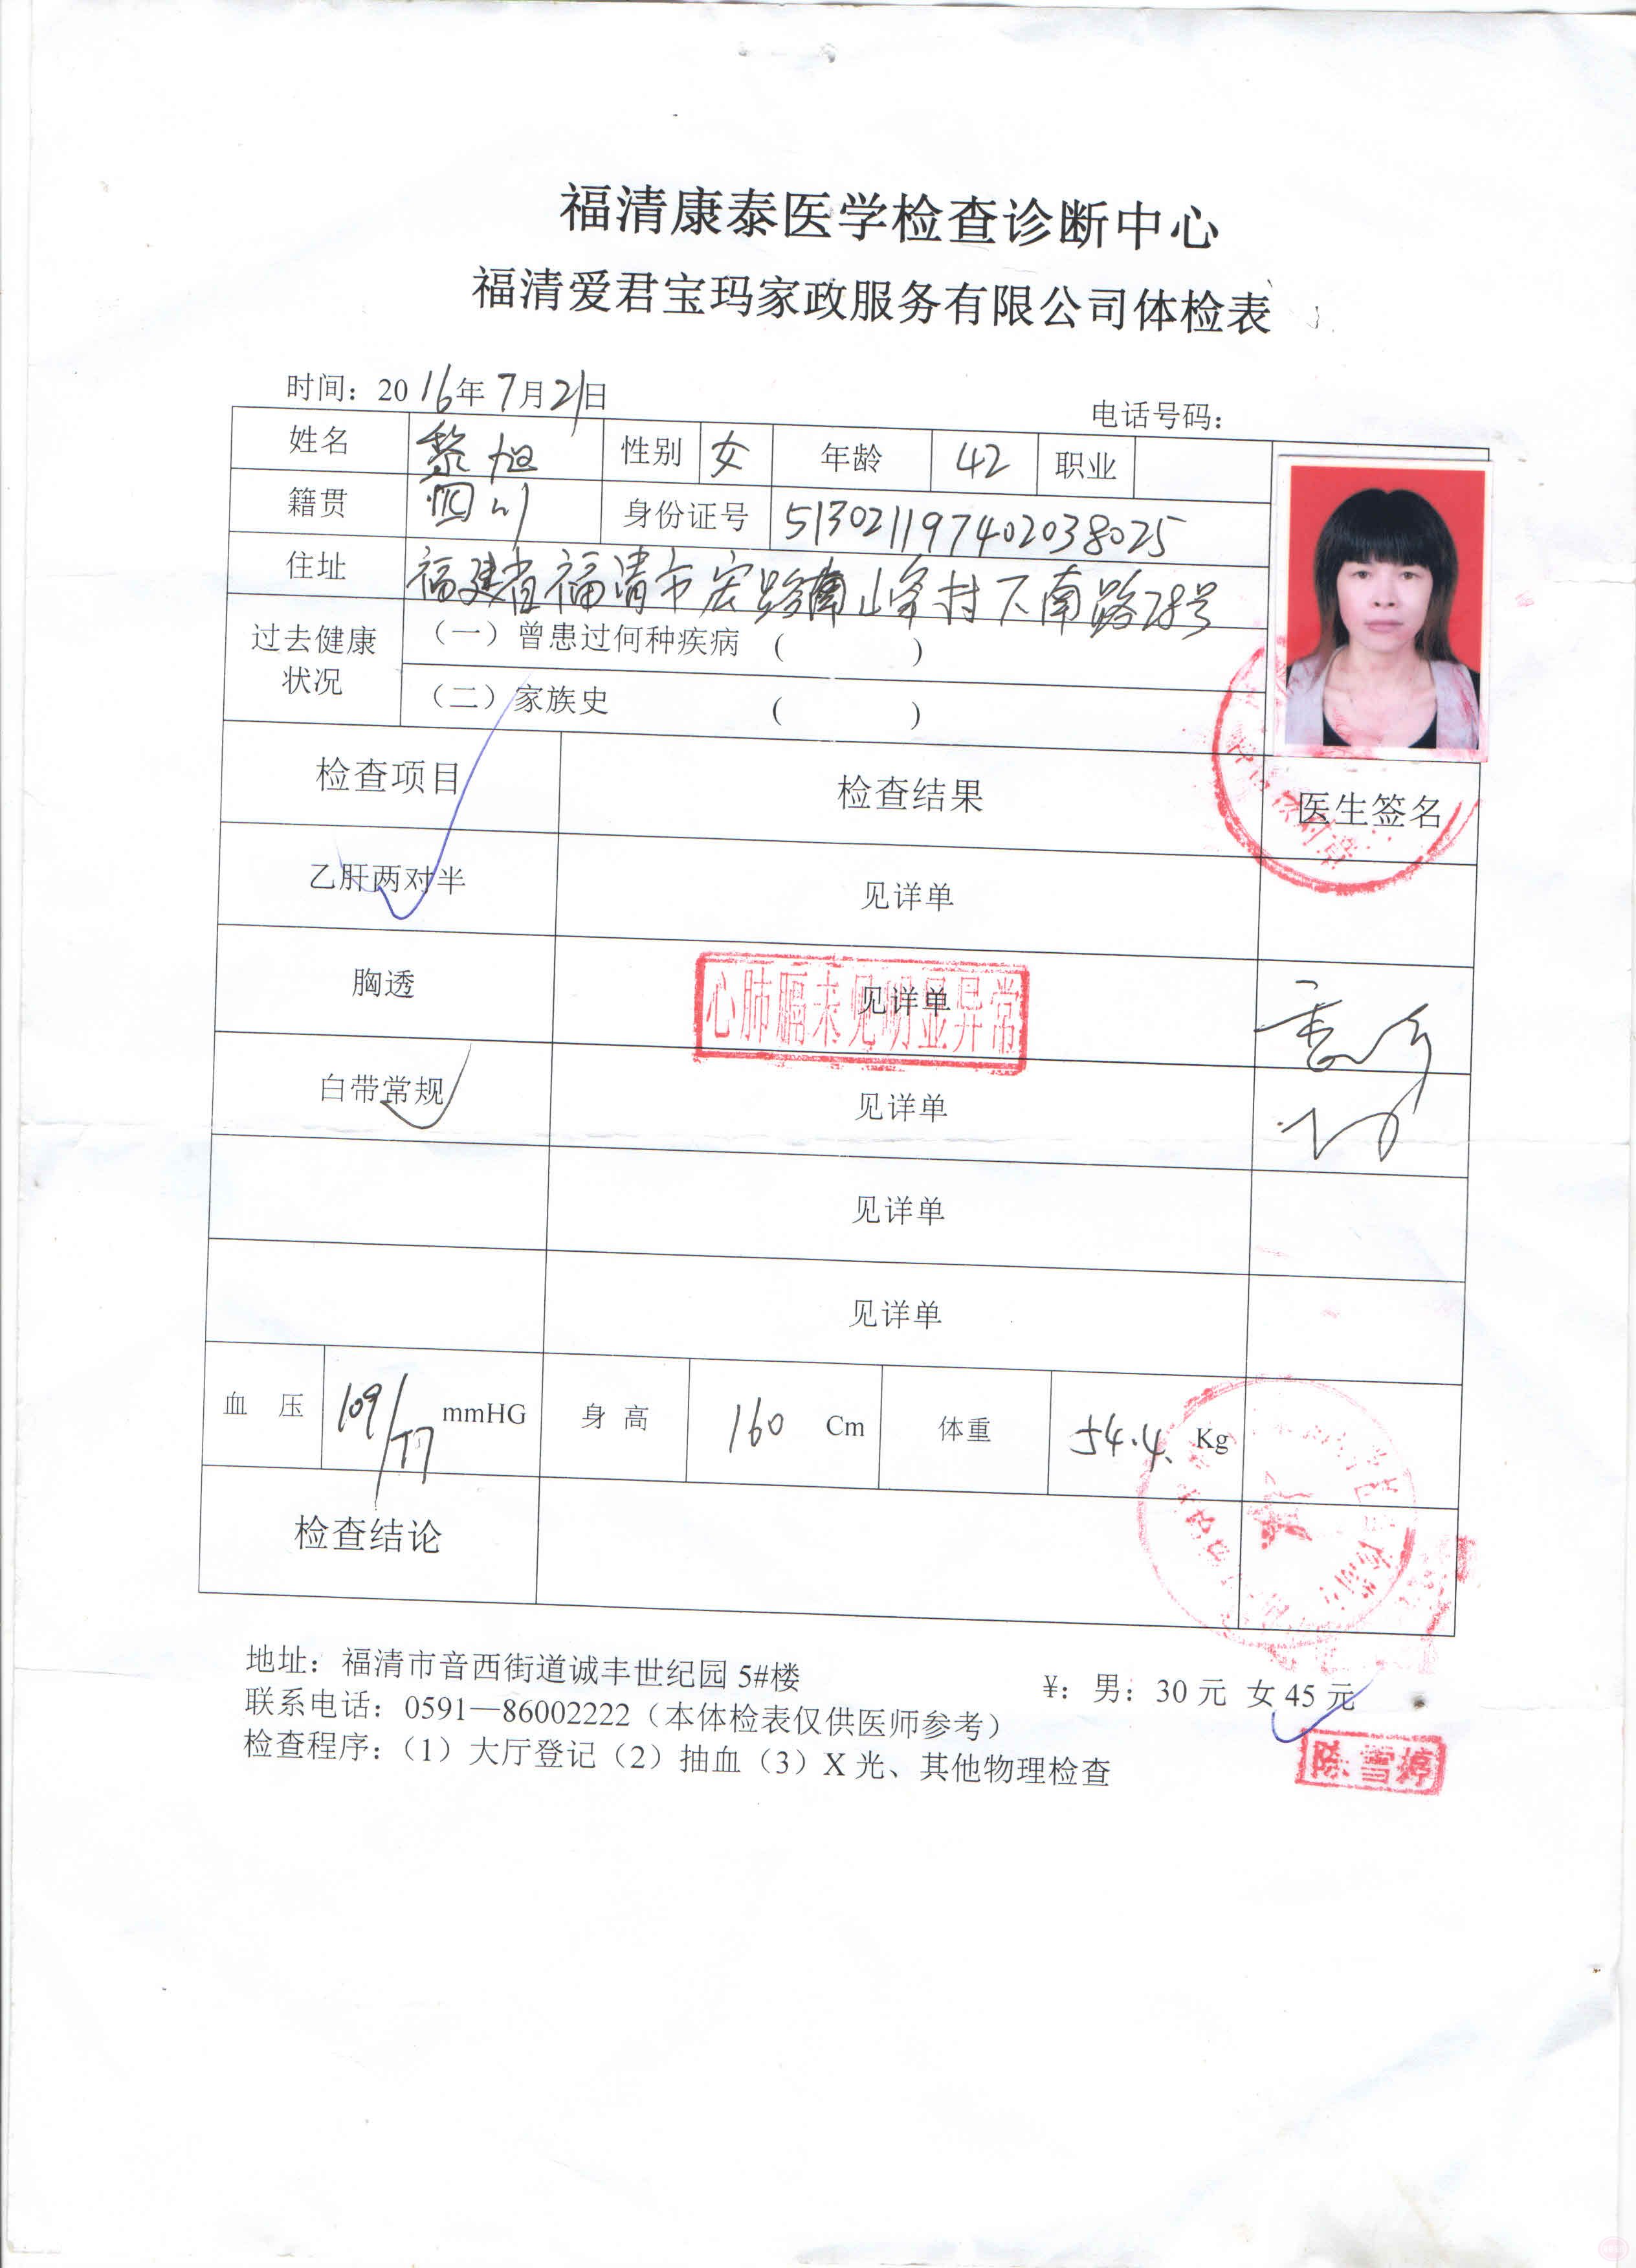 福清康泰医学检查诊断中心
福清爱君宝玛家政服务有限公司体检表
时间：2016年7月21日 电话号码：
姓名 黎旭 性别 女 年龄 42 职业
籍贯 四川 身份证号 513021197402038025
住址 福建省福清市宏路南峰村下南路28号
过去健康状况 （一）曾患过何种疾病 （ ）
（二）家族史 （ ）
检查项目 检查结果 医生签名
乙肝两对半 见详单
胸透 见详单
心肺膈未见明显异常
白带常规 见详单
见详单
见详单
血 压 109/77 mmHG 身 高 160 Cm 体重 54.4 Kg
检查结论
地址：福清市音西街道诚丰世纪园 5#楼
¥：男：30 元 女 45 元
联系电话：0591—86002222（本体检表仅供医师参考）
检查程序：（1）大厅登记（2）抽血（3）X 光、其他物理检查
陈雪婷